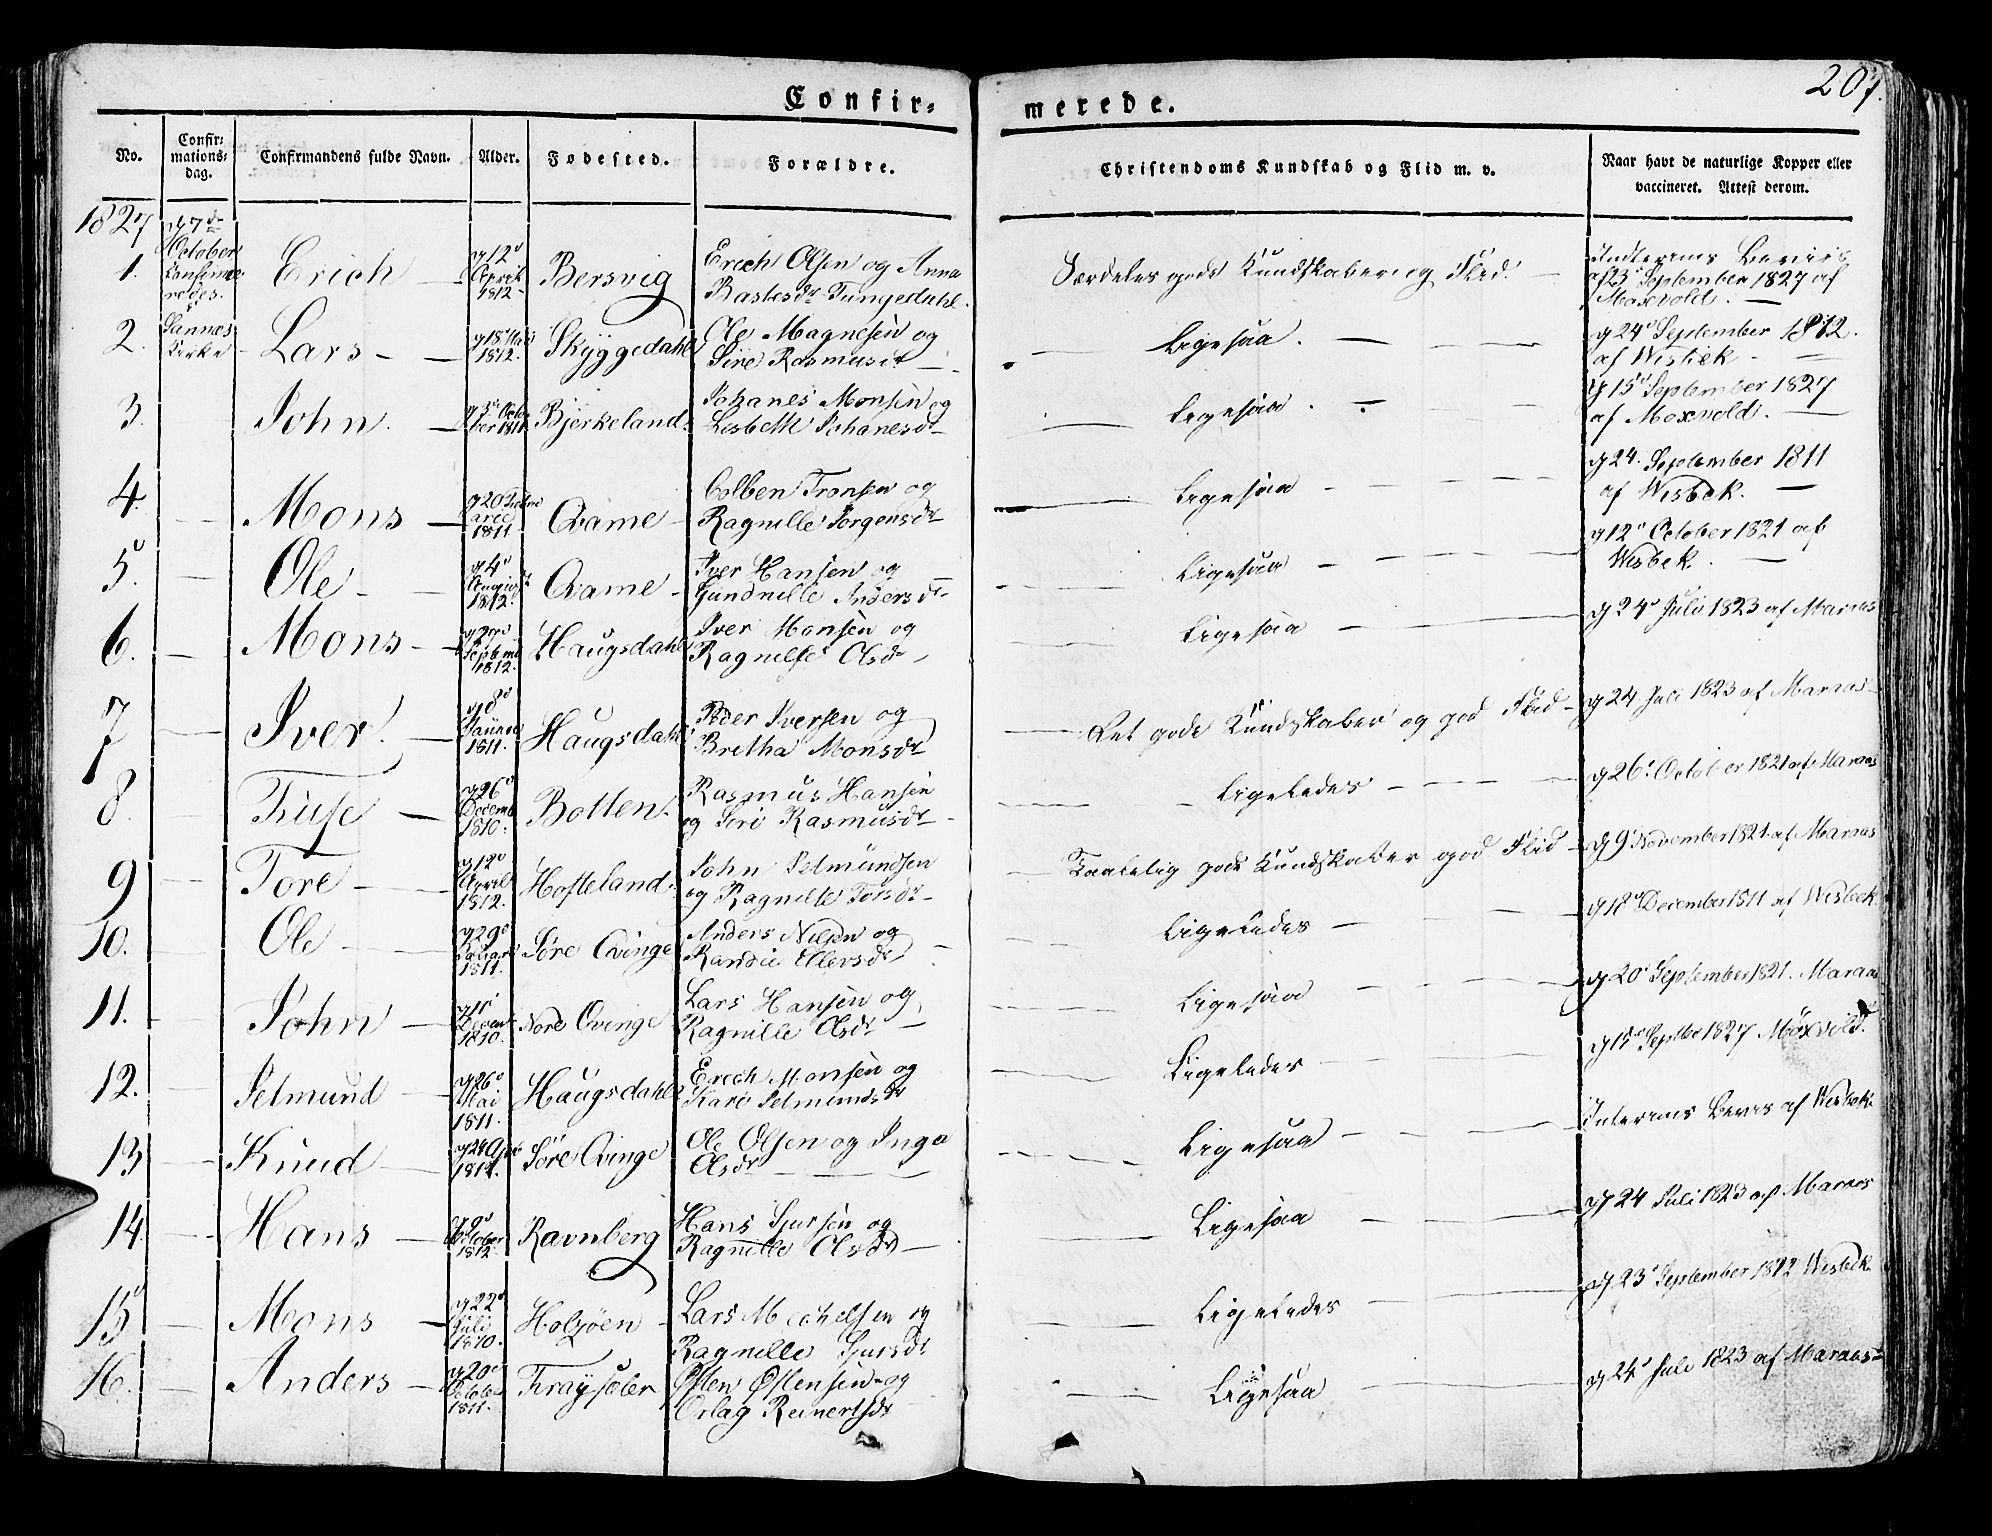 207.
Confir=
merede.
No.
Confir=
mations=
dag.
Confirmandens fulde Navn.
Alder.
Fødested.
Forældre.
Christendoms Kundskab og Flid m. v.
Naar havt de naturlige Kopper eller
vaccineret. Attest derom.
1827
October
Kirke
1. Erich Bersvig Erich Olsen og Anna
April
1812 Særdeles gode Kundskaber og Flid. Interims Beviis
af 23 September 1827 af
Moxvold.
2. Lars 1812. Skyggedahl Ole Magnesen og
Sire Rasmusdr Ligesaa. 24 September 1812.
af Wisbek
3. John Bjerkeland Johanes Monsen og
Lisbeth Johanesdr Ligesaa. 15 September 1827
af Moxvold.
4. Mons 1811 Qvame Colben Tronsen og
Ragnille Jorgensdr Ligesaa 24. September 1811
af Wisbek.
5. Ole 1812. Qvame Iver Hansen og
Gundnille Andersdr Ligesaa 12 October 1821 af
Wisbek.
6. Mons 1812. Haugsdahl Iver Monsen og
Ragnille Olsdr Ligesaa 24 Juli 1823 af Maraas
7 Iver 1811. Haugsdahl Peder Iversen og
Bretha Monsdr Ret gode Kundskaber og god Flid 24 Juli 1823 af Maraas
8. 26 Decemb 1810. Botten Rasmus Hansen
og Siri Rasmusdr Ligeledes 26 October 1821 af Maraas
9 Tore April 1812. Hosteland John Selmundsen
og Ragnille Torsdr Taalelig gode Kundskaber god Flid 9 November 1821 af Maraas
10. Ole 29 1811. Søre Qvinge Anders Nilsen og
Randie Ellersdr Ligeledes 18 December 1811 af Wisbek
11. John 1810. Nore Qvinge Lars Hansen og
Ragnille Olsdr Ligesaa 20 September 1821. Maraas
12. Selmund 26 Mai 1811. Haugsdahl Erich Monsen og
Kari Selmundsdr Ligeledes Septber 1827 Moxvold.
13 Knud Søre Qvinge Ole Olsen og Inga
Olsdr Ligesaa Interims Bevis af Wisbek
14. Hans 9 October 1812. Ravnberg Hans Sjursen og
Ragnille Olsdr Ligesaa 24 Juli 1823 af Maraas
15 Mons 22 Juli 1810. Holsøen Lars Michelsen og
Ragnille Sjursdr Ligeledes 23 September 1812 Wisbek
16. Anders 20 October 1811. Østen Østensen og
Orlag Reinertsdr Ligesaa 24 Juli 1823 af Maraas